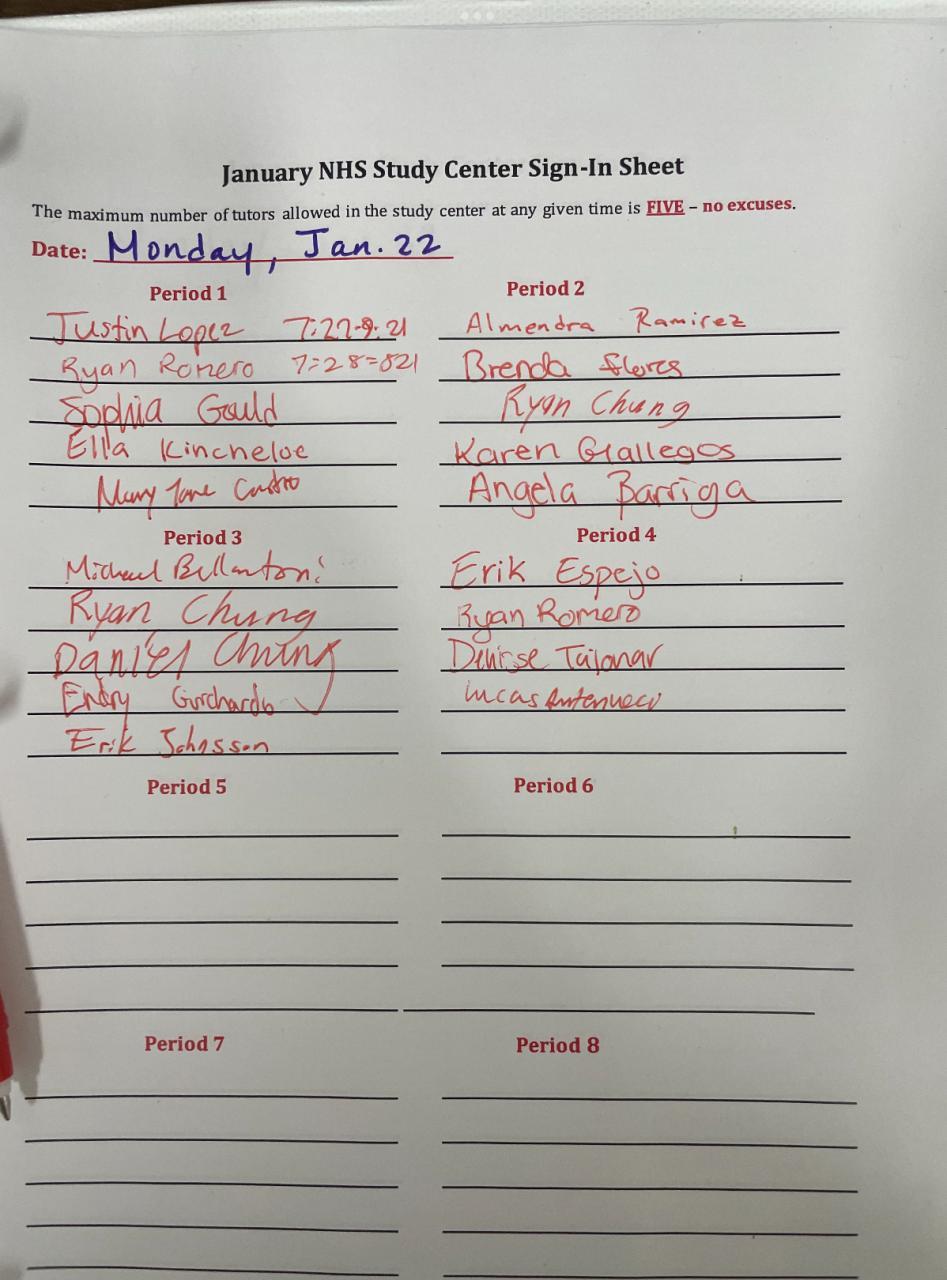 January NHS Study Center Sign-In Sheet
The maximum number of tutors allowed in the study center at any given time is FIVE – no excuses.
Date: Monday, Jan. 22
Period 1
Justin Lopez 7:27-8:21
Ryan Romero 7:28=821
Sophia Gould
Ella Kincheloe
Mary Jane Castro
Period 2
Almendra Ramirez
Brenda flores
Ryan Chung
Karen Gallegos
Angela Barriga
Period 3
Michael Bellantoni
Ryan Chung
Daniel Chung
Endry
Erik Johnsson
Period 4
Erik Espejo
Ryan Romero
Denisse Tajonar
Lucas
Period 5
Period 6
Period 7
Period 8